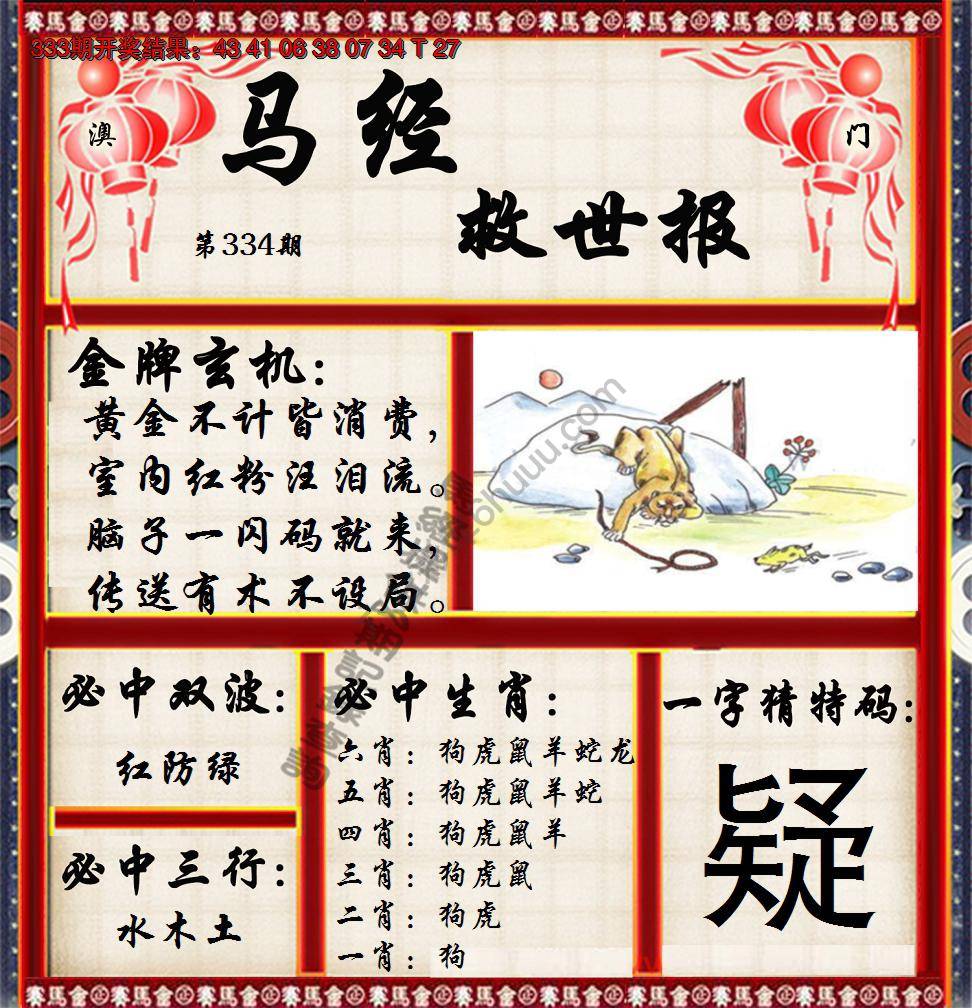 333期开奖结果：43 41 06 38 07 34 T 27
澳
门
马经
救世报
第334期
金牌玄机：
黄金不计皆消费，
室内红粉汪泪流。
脑子一闪码就来，
传送有术不设局。
必中双波：
红防绿
必中三行：
水木土
必中生肖：
六肖：狗虎鼠羊蛇龙
五肖：狗虎鼠羊蛇
四肖：狗虎鼠羊
三肖：狗虎鼠
二肖：狗虎
一肖：狗
一字猜特码：
疑